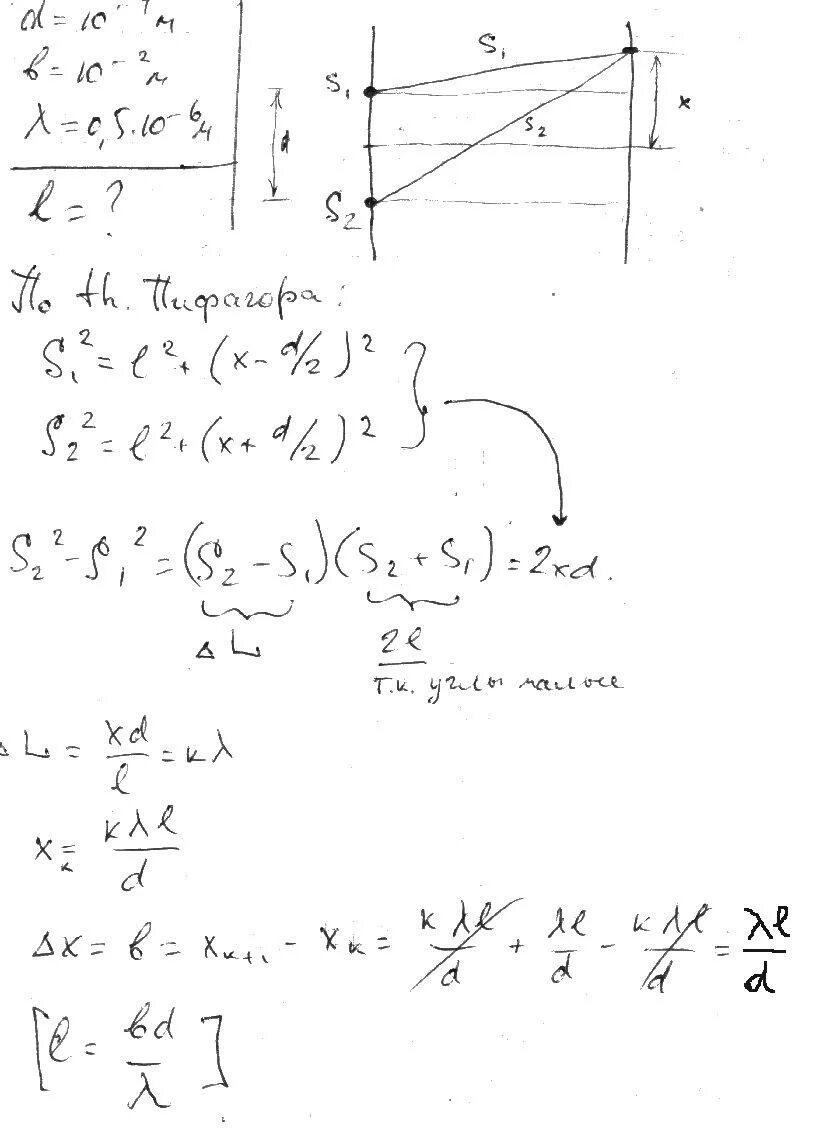 d = 10⁻⁴ м
b = 10⁻² м
λ = 0,5·10⁻⁶ м
l = ?
S₁ S₂ S₁ S₂ d x
По th. Пифагора:
S₁² = l² + (x - d/2)²
S₂² = l² + (x + d/2)²
S₂² - S₁² = (S₂ - S₁)(S₂ + S₁) = 2xd.
ΔL 2l
т.к. углы малые
ΔL = xd/l = kλ
xₖ = kλl/d
Δx = b = xₖ₊₁ - xₖ = kλl/d + λl/d - kλl/d = λl/d
[l = bd/λ]